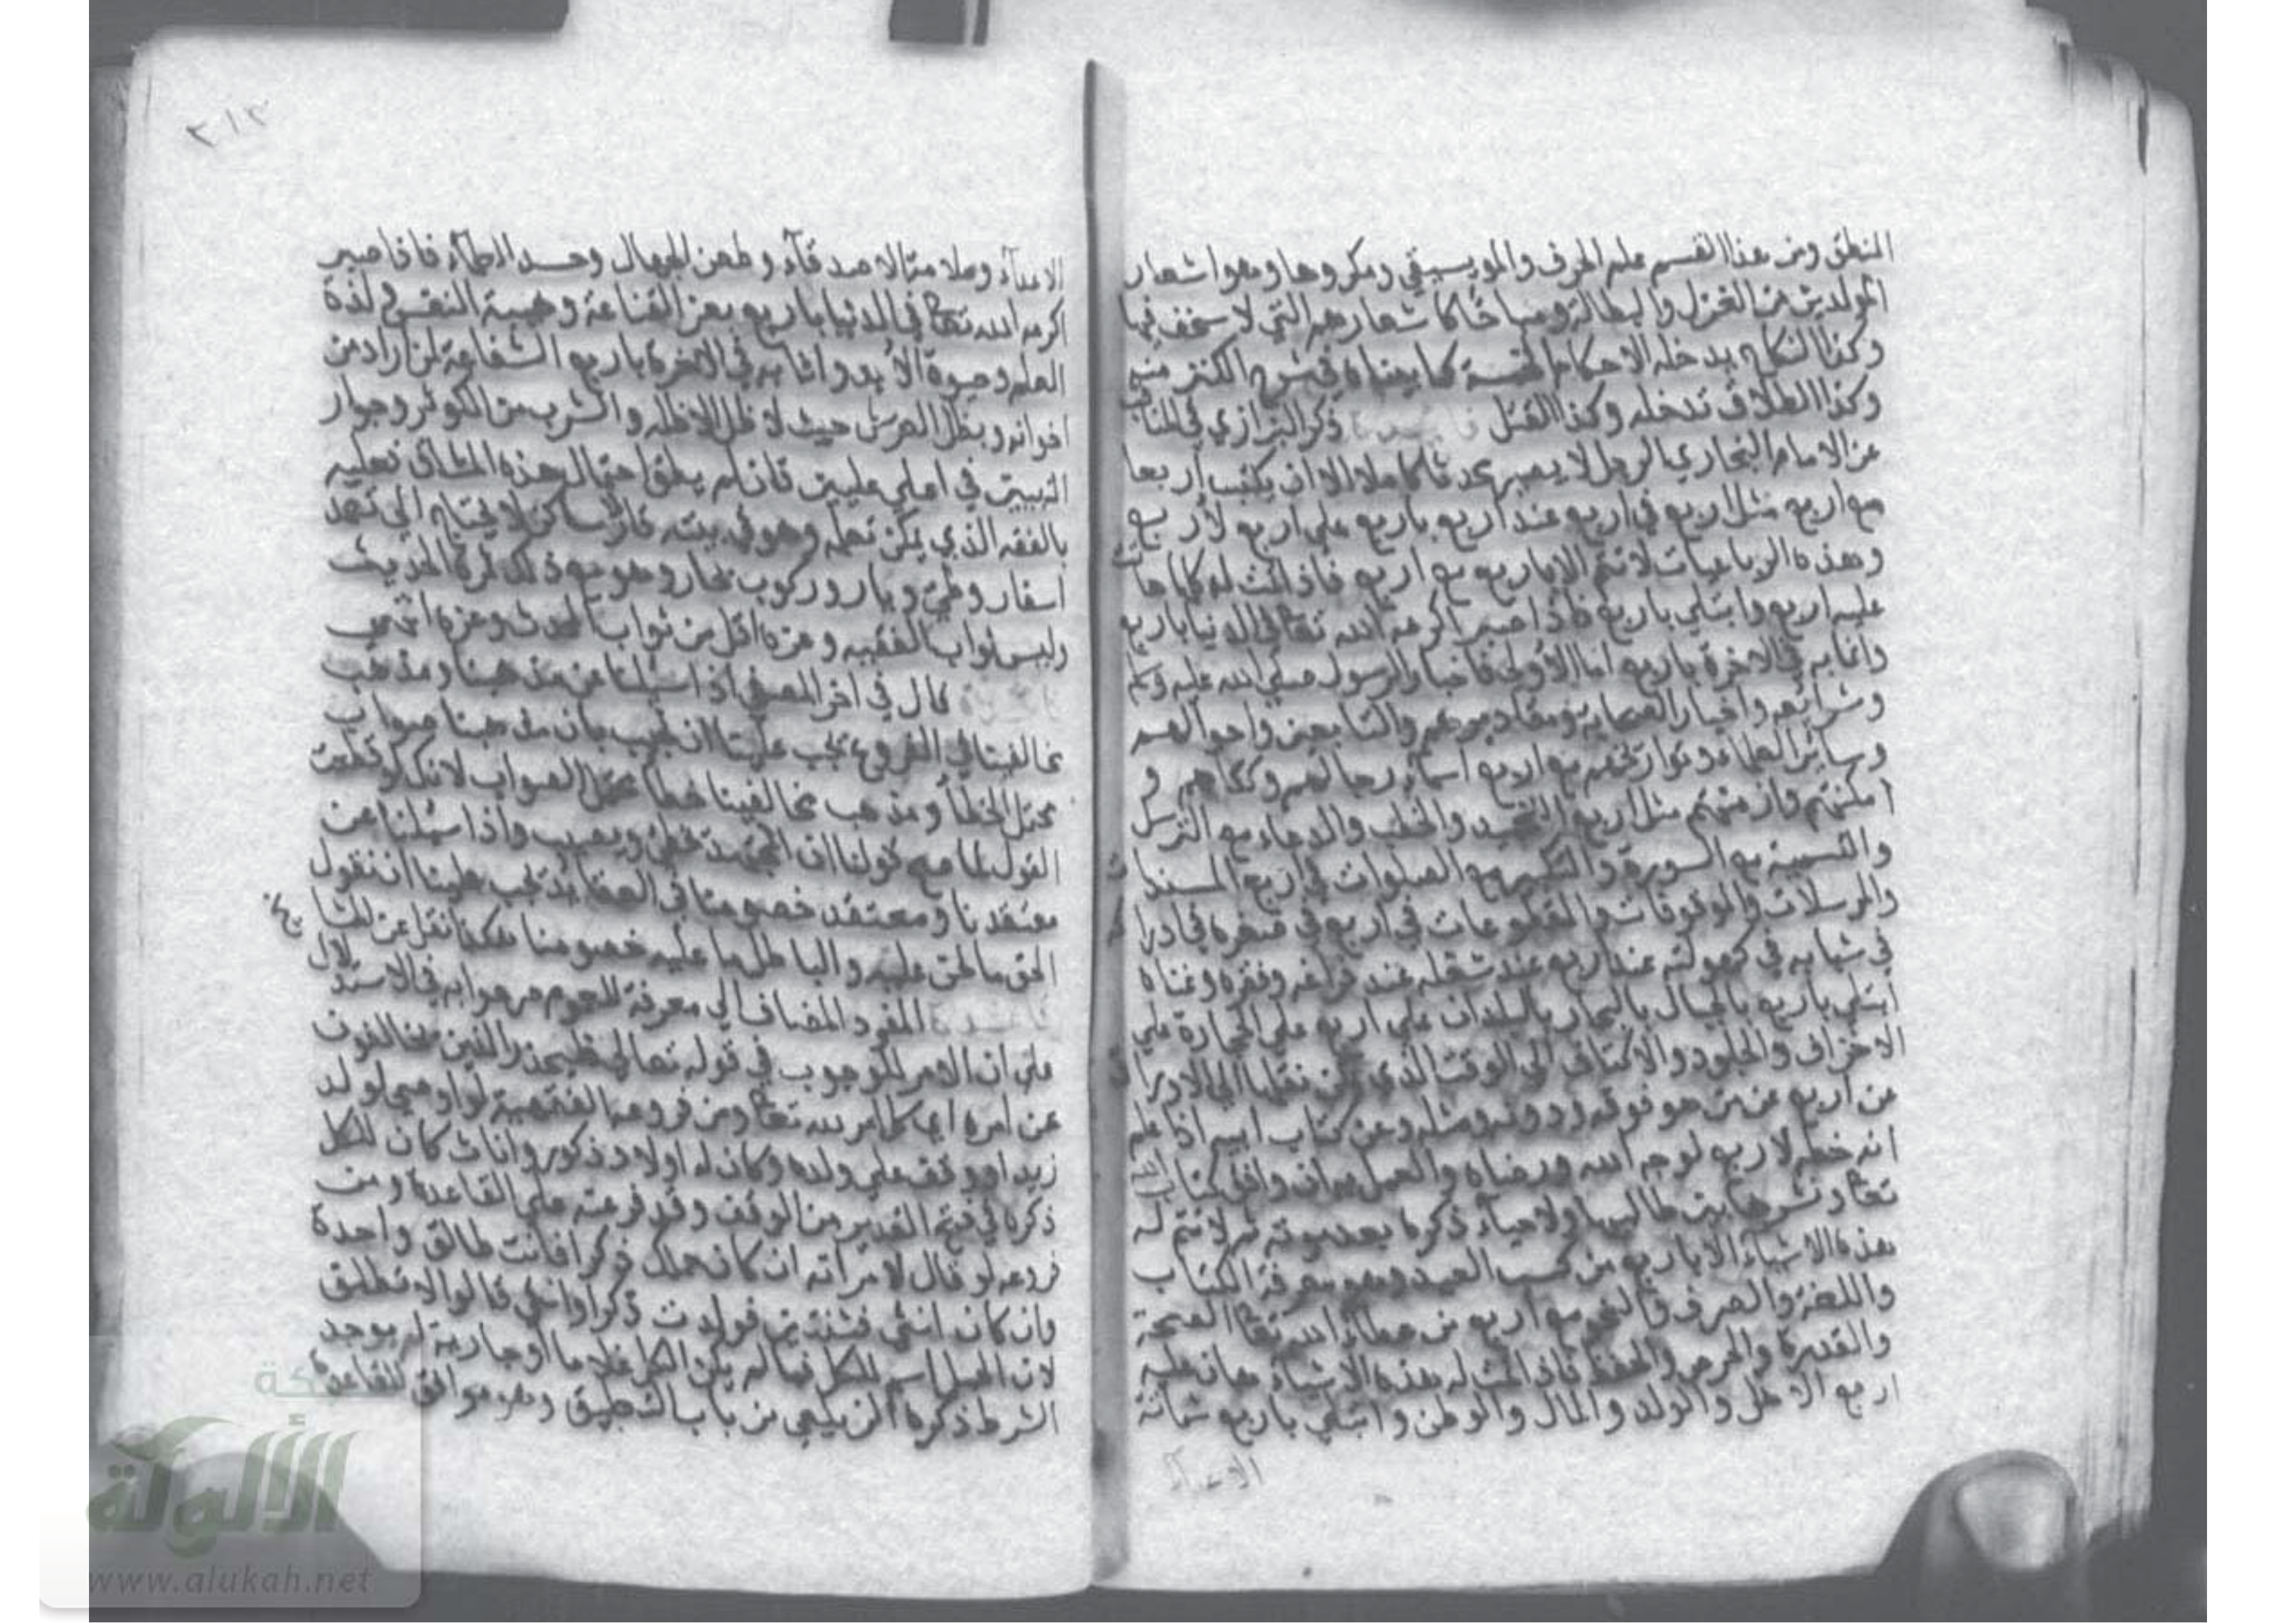 المنطق ومن هذا القسم علم الحرف والموسيقي ومكروها وهو اشعار
المولدين من الغزل والبطالة ومباحًا كاشعارهم التي لا سخف فيها
وكذا النكاح يدخله الاحكام الخمسة كما بيناه في شرح الكنز منه
وكذا الطلاق تدخله وكذا القتل ذكر البزازي في المناقب
عن الامام البخاري الرجل لا يصير محدثا كاملا الا ان يكتب اربعا
مع اربع مثل اربع في اربع عند اربع باربع علي اربع لاربع
وهذه الرباعيات لا تتم الا باربع مع اربع فاذا تمت له كلها هان
عليه اربع وابتلي باربع فاذا صبر اكرمه الله تعا في الدنيا باربع
واثابه في الاخرة باربع اما الاولي فاخبار الرسول صلي الله عليه وسلم
وشرائعه واخبار الصحابة ومقاديرهم والتابعين واحوالهم
وسائر العلماء وتواريخهم مع اربع اسماء رجالهم وكناهم و
امكنتهم وازمنتهم مثل اربع التحميد والخطب والدعاء مع الترسل
والتسمية مع السورة والتكبير مع الصلوات في اربع المسندات
والمرسلات والموقوفات والمقطوعات في اربع في صغره في ادراكه
في شبابه في كهولته عند اربع عند شغله عند فراغه وفقره وغناه
ابتلي باربع بالجبال بالبحار بالبلدان علي اربع علي الحجارة علي
الاخزاف والجلود والاكتاف الي الوقت الذي يمكن نقلها الي الاوراق
من اربع عن من هو فوقه ودونه ومثله وعن كتاب ابيه اذا علم
انه خطه لاربع لوجه الله ورضاه والعمل به ان وافق كتاب الله
تعا ونشرها بين طالبيها ولاحياء ذكره بعد موته ثم لا تتم له
هذه الاشياء الا باربع من كسب العبد وهو معرفة الكتاب
واللغة والصرف والنحو مع اربع من عطاء الله تعا الصحة
والقدرة والحرص والحفظ فاذا تمت له هذه الاشياء هان عليه
اربع الاهل والولد والمال والوطن وابتلي باربع شماتة
الاعداء
٢١٢
الاعداء وملامة الاصدقاء وطعن الجهال وحسد العلماء فاذا صبر
اكرمه الله تعا في الدنيا باربع بعز القناعة وهيبة النفس ولذة
العلم وحيوة الابد واثابه في الاخرة باربع الشفاعة لمن اراد من
اخوانه وبظل العرش حيث لا ظل الا ظله والشرب من الكوثر وجوار
النبيين في اعلي عليين فان لم يطق احتمال هذه المشاق فعليه
بالفقه الذي يمكن تعلمه وهو في بيته قار ساكن لا يحتاج الي بعد
اسفار وطي ديار وركوب بحار وهو مع ذلك ثمرة الحديث
وليس ثواب الفقيه وعزه اقل من ثواب المحدث وعزه انتهي
قال في اخر المصفي اذا سئلنا عن مذهبنا ومذهب
مخالفينا في الفروع يجب علينا ان نجيب بان مذهبنا صواب
يحتمل الخطأ ومذهب مخالفينا خطأ يحتمل الصواب لانك لو قطعت
القول لما صح قولنا ان المجتهد يخطئ ويصيب واذا سئلنا عن
معتقدنا ومعتقد خصومنا في العقايد يجب علينا ان نقول
الحق ما نحن عليه والباطل ما عليه خصومنا هكذا نقل عن المشايخ
المفرد المضاف الي معرفة للعموم صرحوا به في الاستدلال
علي ان الامر للوجوب في قوله تعالي فليحذر الذين يخالفون
عن امره اي كل امر لله تعا ومن فروعها الفقهية لو اوصي لولد
زيد او وقف علي ولده وكان له اولاد ذكور واناث كان للكل
ذكره في فتح القدير من الوقف وقد فرعته علي القاعدة ومن
فروعه لو قال لامراته ان كان حملك ذكرا فانت طالق واحدة
وان كان انثي فثنتين فولدت ذكرا وانثي قالوا لا تطلق
لان الحمل اسم للكل فما لم يكن الكل غلاما او جارية لم يوجد
الشرط ذكره الزيلعي من باب التعليق وهو موافق للقاعدة
شبكة
الألوكة
www.alukah.net